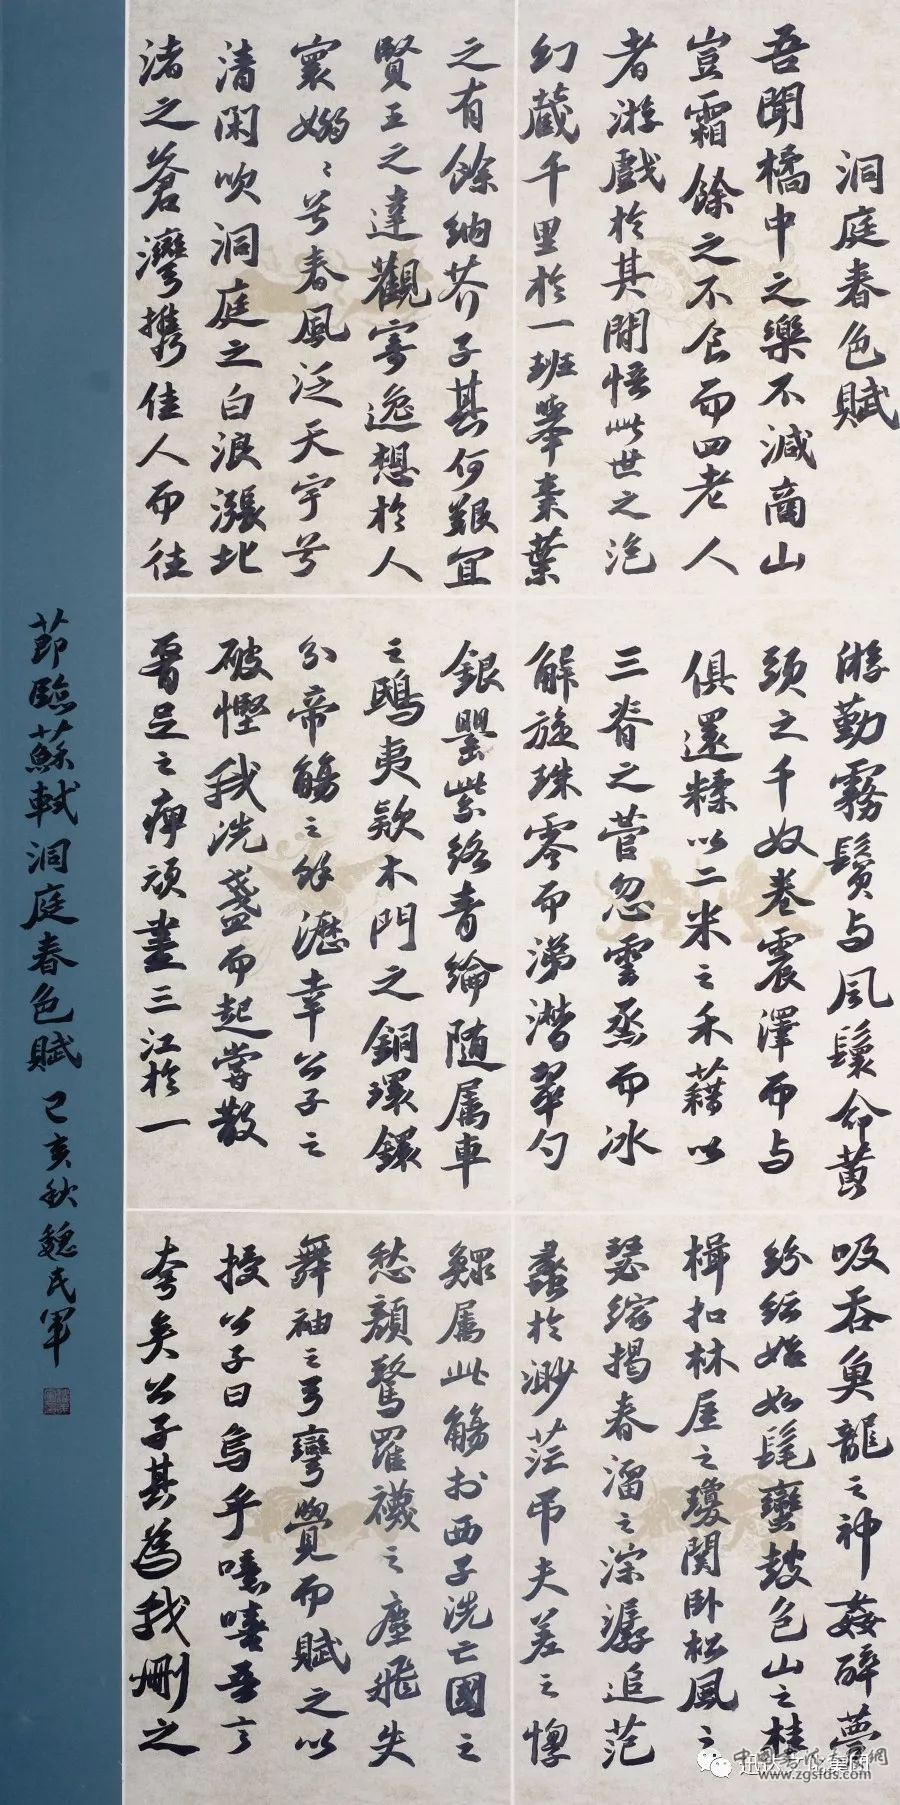 洞庭春色賦
吾聞橘中之樂不減商山
豈霜餘之不食而四老人
者游戲於其間悟此世之泡
幻藏千里於一班舉棗葉
之有餘納芥子其何艱宜
賢王之達觀寄逸想於人
寰嫋〻兮春風泛天宇兮
清閑吹洞庭之白浪漲北
渚之蒼灣攜佳人而往
游勤霧鬢与風鬟命黃
頭之千奴卷震澤而与
俱還糅以二米之禾藉以
三脊之菅忽雲烝而冰
解旋珠零而涕潸翠勺
銀罌紫絡青綸隨属車
之鴟夷欵木門之銅環鐶
分帝觴之餘瀝幸公子之
破慳我洗盞而起嘗散
腰足之痺頑盡三江於一
吸吞魚龍之神姦醉夢
紛紜始如髦蠻鼓包山之桂
楫扣林屋之瓊関卧松風之
瑟縮揭春溜之淙潺追范
蠡於渺茫吊夫差之惸
鰥属此觴於西子洗亡國之
愁顏驚羅襪之塵飛失
舞袖之弓彎覺而賦之以
授公子曰烏乎噫嘻吾言
夸矣公子其為我刪之
節臨蘇軾洞庭春色賦 己亥秋魏民軍
www.zgsfds.com